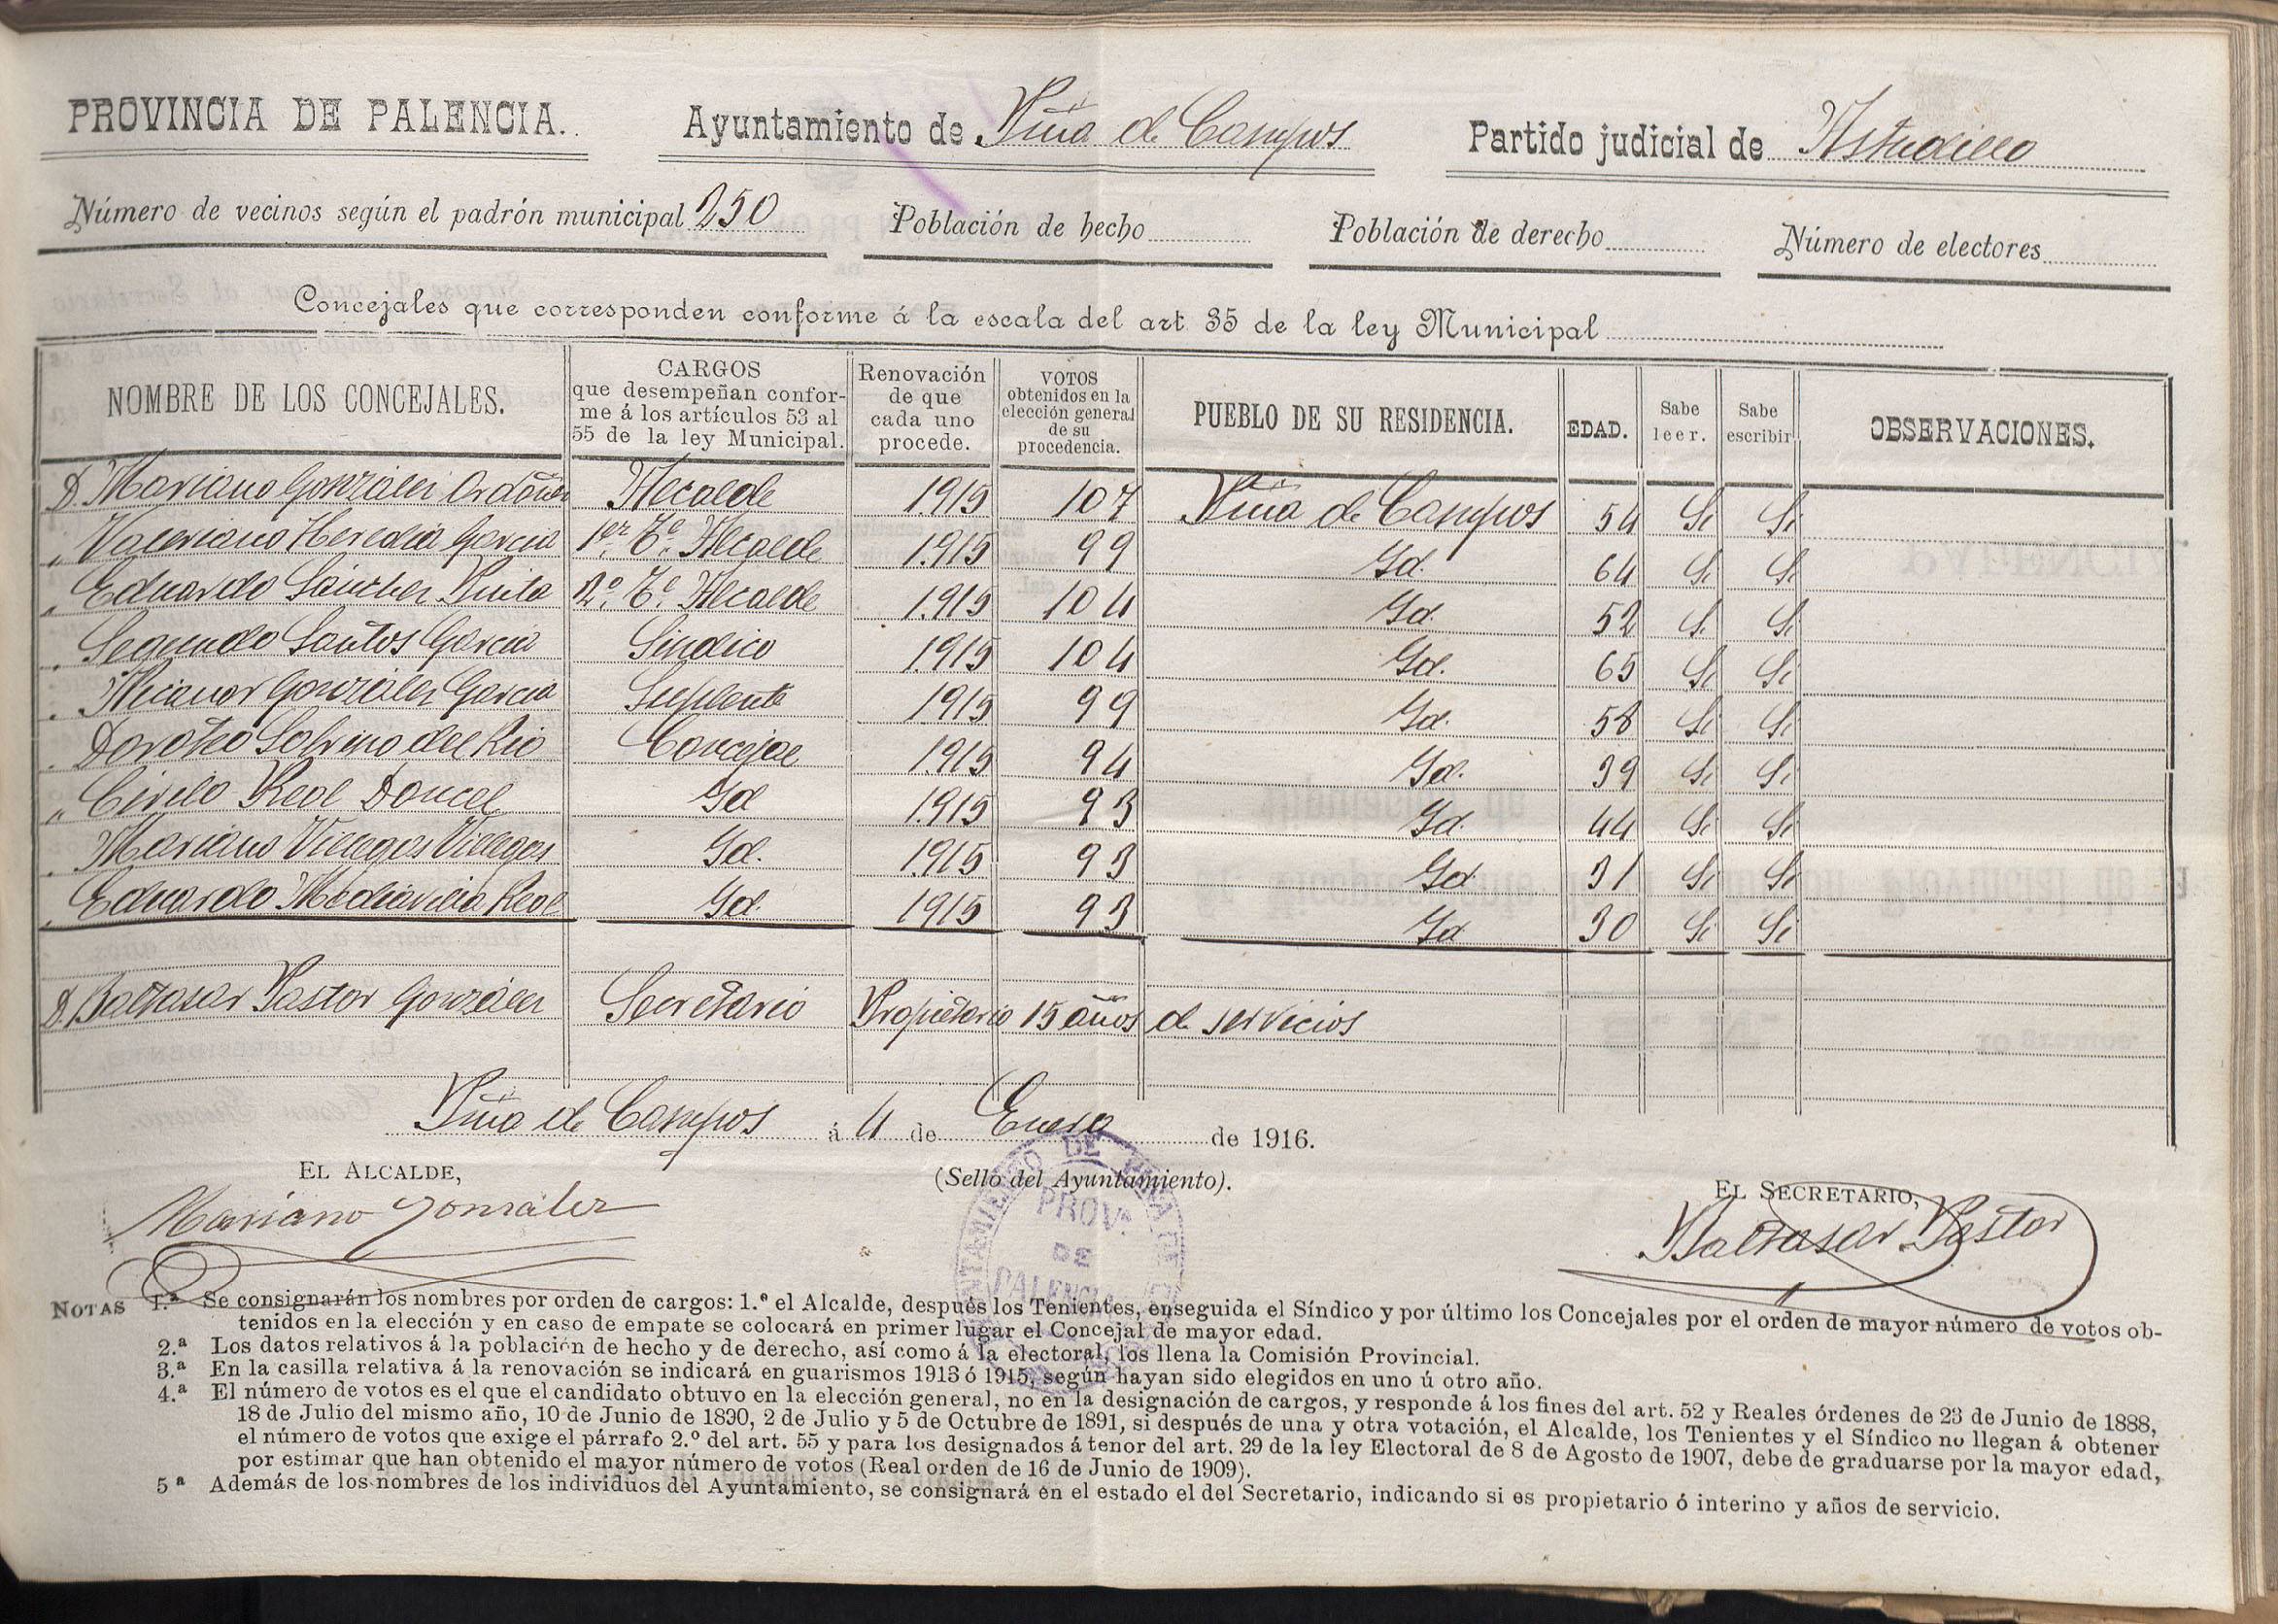 PROVINCIA DE PALENCIA. Ayuntamiento de Piña de Campos Partido judicial de Astudillo
Número de vecinos según el padrón municipal 250 Población de hecho Población de derecho Número de electores
Concejales que corresponden conforme á la escala del art 35 de la ley Municipal
NOMBRE DE LOS CONCEJALES. CARGOS que desempeñan confor-me á los artículos 53 al 55 de la ley Municipal. Renovación de que cada uno procede. VOTOS obtenidos en la elección general de su procedencia. PUEBLO DE SU RESIDENCIA. EDAD. Sabe leer. Sabe escribir OBSERVACIONES.
D. Mariano González Ordóñez Alcalde 1915 107 Piña de Campos 54 Si Si
" Valeriano Heredia García 1er. Te. Alcalde 1915 99 Id. 64 Si Si
" Eduardo Sánchez Pinta 2o. Te. Alcalde 1915 104 Id. 52 Si Si
" Segundo Santos García Sindico 1915 104 Id. 65 Si Si
" Nicanor González García Suplente 1915 99 Id. 58 Si Si
" Doroteo Sobrino del Rio Concejal 1915 94 Id. 39 Si Si
" Cirilo Reol Doncel Id 1915 93 Id. 44 Si Si
" Mariano Villegas Villegas Id. 1915 93 Id 31 Si Si
" Eduardo Mediavilla Reol Id. 1915 93 Id 30 Si Si
D. Baltasar Pastor González Secretario Propietario 15 años de servicios
Piña de Campos á 4 de Enero de 1916.
EL ALCALDE, (Sello del Ayuntamiento). EL SECRETARIO,
Mariano González Baltasar Pastor
AYUNTAMIENTO DE PIÑA DE
PROVª.
DE
PALENCIA
NOTAS 1.ª Se consignarán los nombres por orden de cargos: 1.º el Alcalde, después los Tenientes, enseguida el Síndico y por último los Concejales por el orden de mayor número de votos ob-
tenidos en la elección y en caso de empate se colocará en primer lugar el Concejal de mayor edad.
2.ª Los datos relativos á la población de hecho y de derecho, así como á la electoral, los llena la Comisión Provincial.
3.ª En la casilla relativa á la renovación se indicará en guarismos 1913 ó 1915, según hayan sido elegidos en uno ú otro año.
4.ª El número de votos es el que el candidato obtuvo en la elección general, no en la designación de cargos, y responde á los fines del art. 52 y Reales órdenes de 23 de Junio de 1888,
18 de Julio del mismo año, 10 de Junio de 1890, 2 de Julio y 5 de Octubre de 1891, si después de una y otra votación, el Alcalde, los Tenientes y el Síndico no llegan á obtener
el número de votos que exige el párrafo 2.º del art. 55 y para los designados á tenor del art. 29 de la ley Electoral de 8 de Agosto de 1907, debe de graduarse por la mayor edad,
por estimar que han obtenido el mayor número de votos (Real orden de 16 de Junio de 1909).
5ª Además de los nombres de los individuos del Ayuntamiento, se consignará en el estado el del Secretario, indicando si es propietario ó interino y años de servicio.